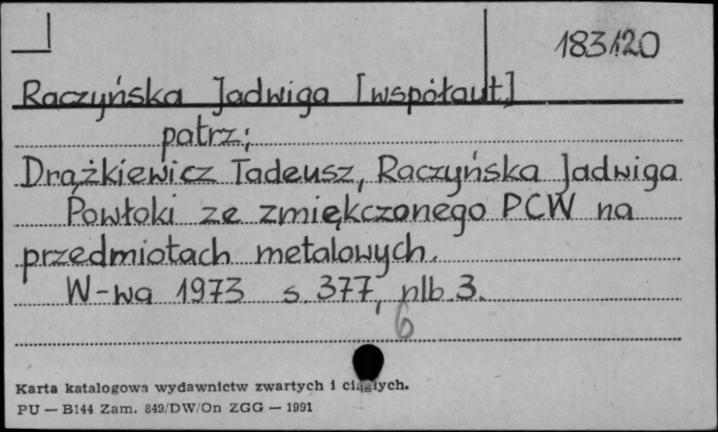 183120
Raczyńska Jadwiga [współaut]
patrz;
Drążkiewicz Tadeusz, Raczyńska Jadwiga
Powłoki ze zmiękczonego PCW na
przedmiotach metalowych.
W-wa 1973 s. 377, nlb 3.
6
Karta katalogowa wydawnictw zwartych i ciągłych.
PU — B144 Zam. 849/DW/On ZGG — 1991